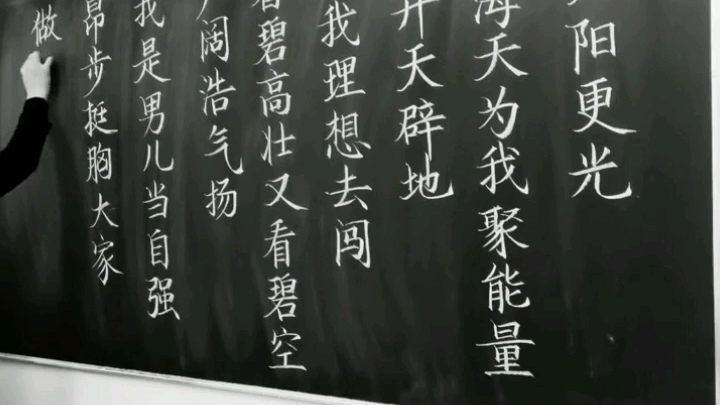 阳更光
海天为我聚能量
开天辟地
我理想去闯
看碧高壮又看碧空
阔浩气扬
我是男儿当自强
昂步挺胸大家
做